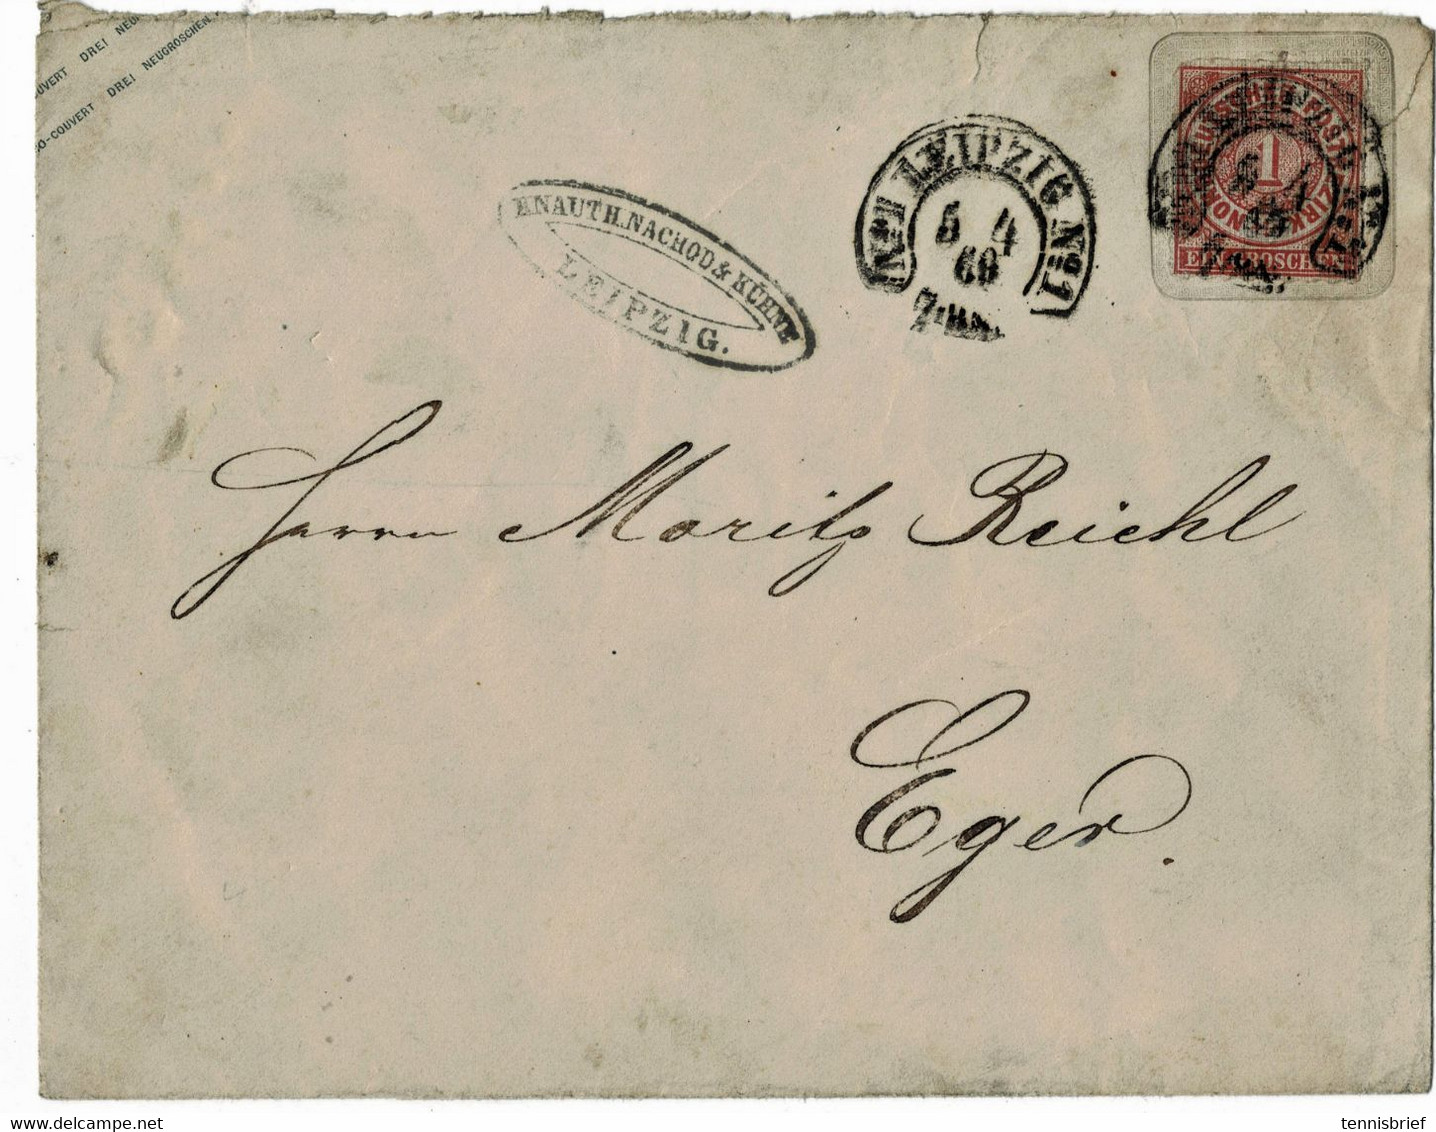 COUVERT DREI NEU
COUVERT DREI NEUGROSCHEN.
KNAUTH. NACHOD & KÜHNE
LEIPZIG.
No 1 LEIPZIG No 1
5 4
68
1
EIN GROSCHEN
Herrn Moritz Reichl
Eger.
tennisbrief